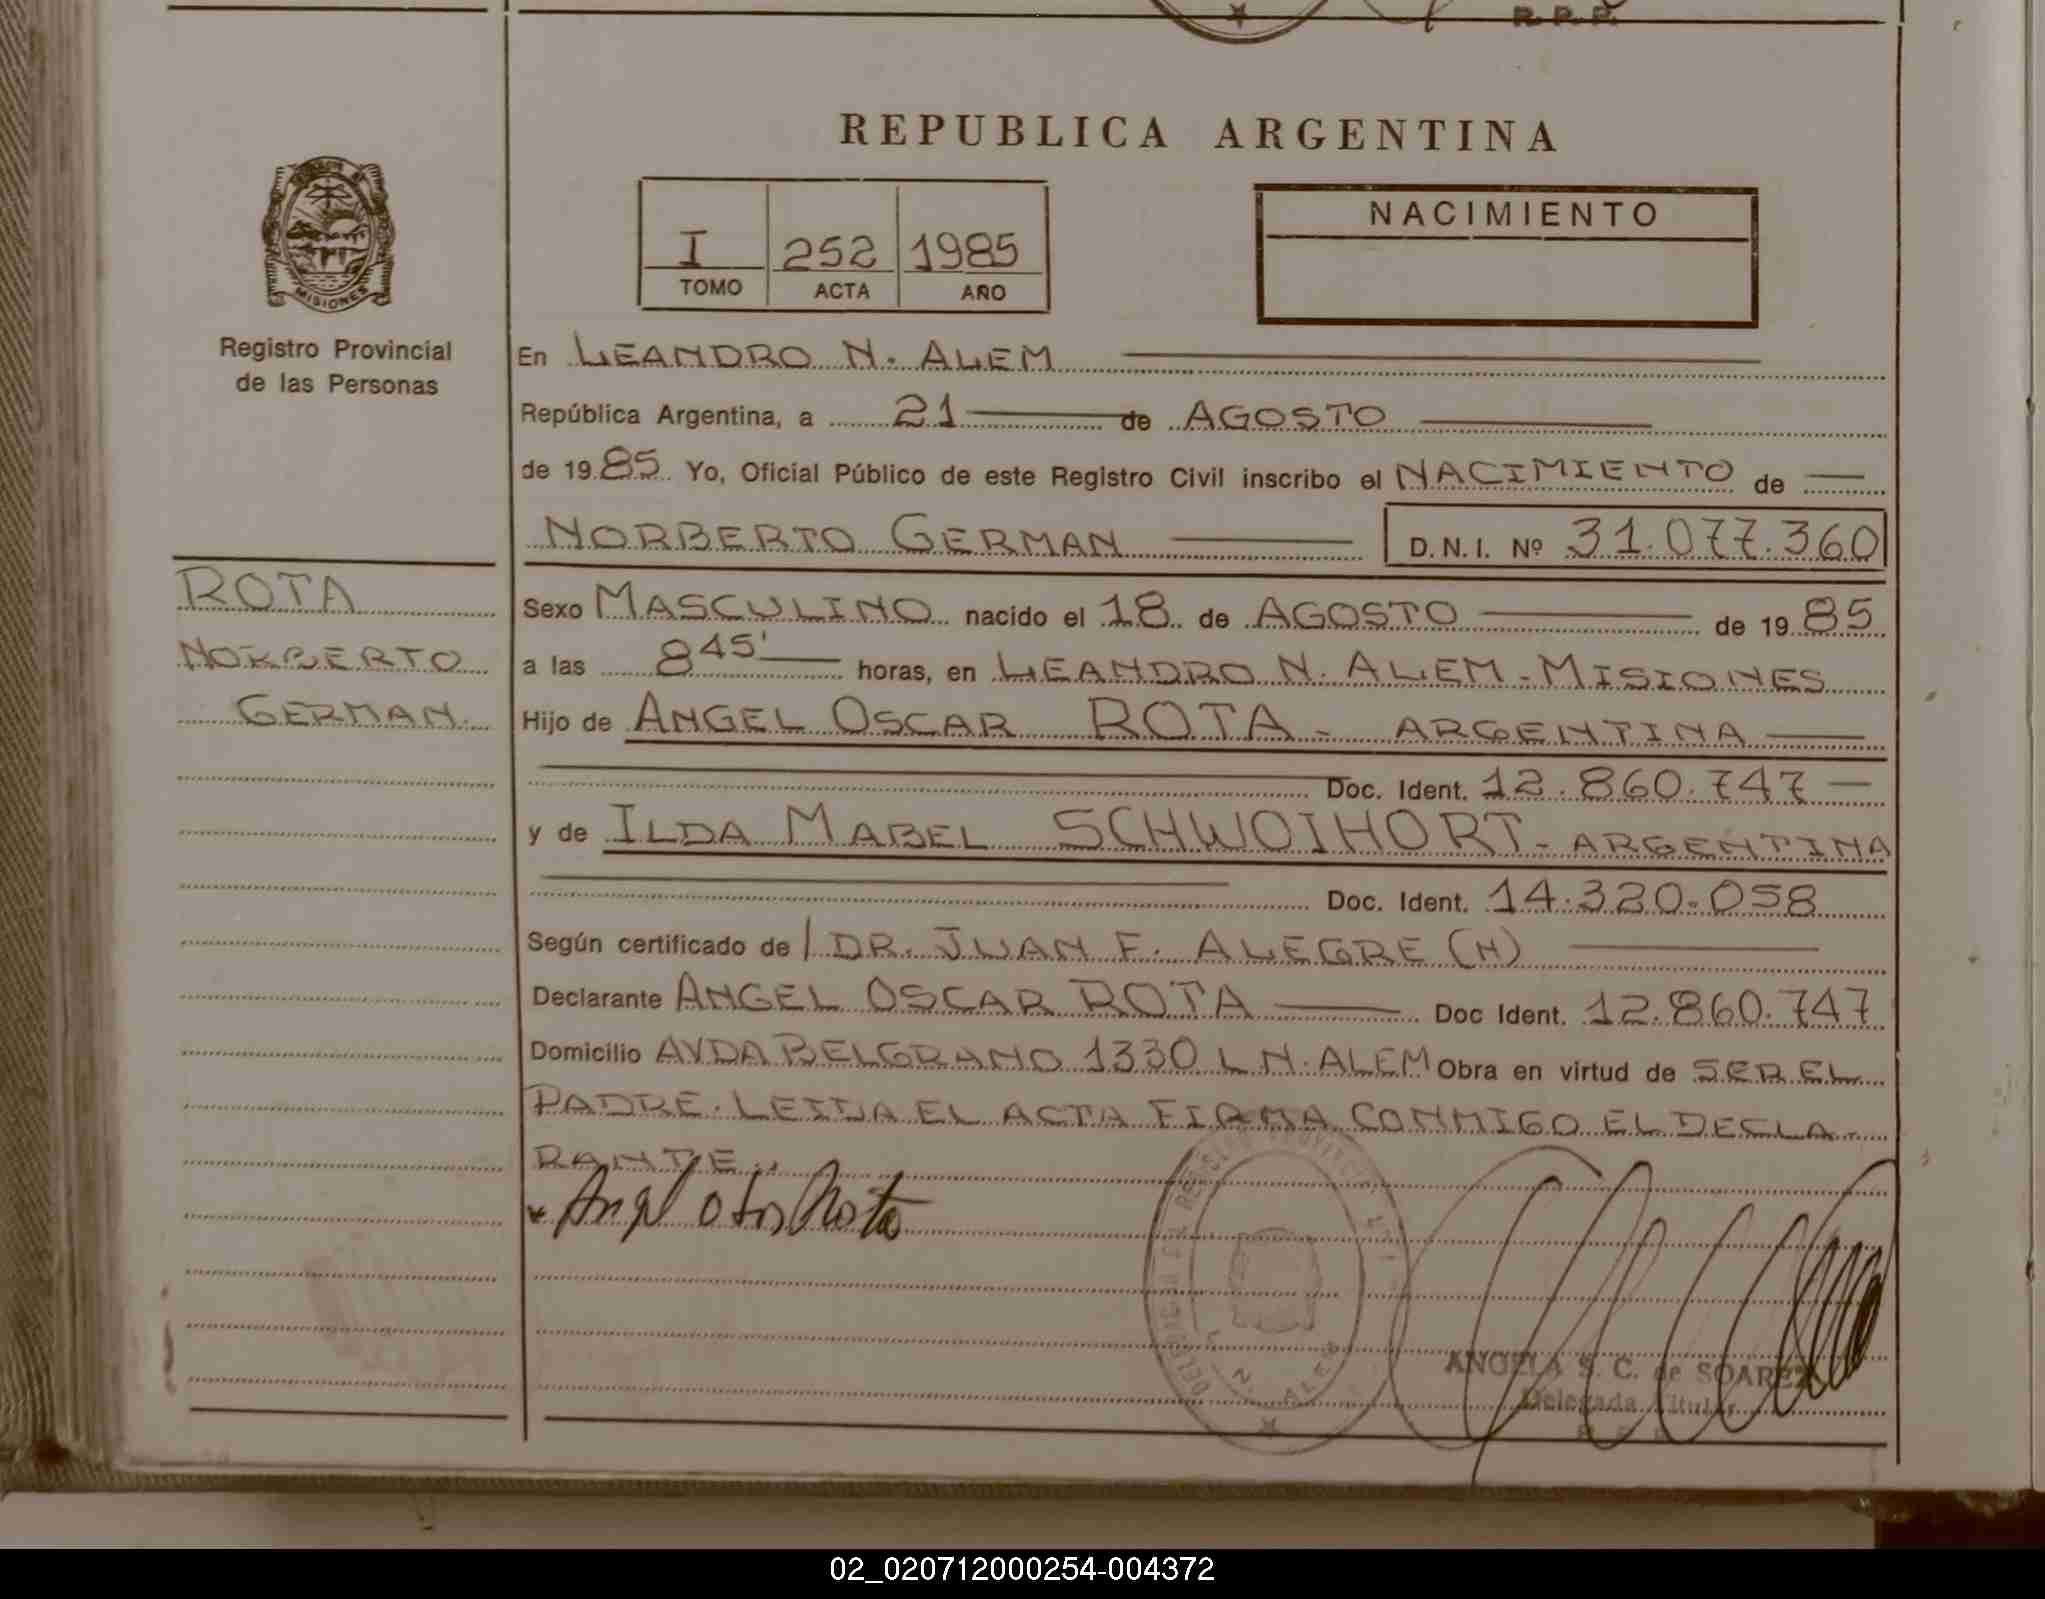 R. P. P.
REPUBLICA ARGENTINA
MISIONES
Registro Provincial
de las Personas
I 252 1985
TOMO ACTA AÑO
NACIMIENTO
En LEANDRO N. ALEM
República Argentina, a 21 de AGOSTO
de 1985 Yo, Oficial Público de este Registro Civil inscribo el NACIMIENTO de
NORBERTO GERMAN D.N.I. Nº 31.077.360
ROTA
NORBERTO
GERMAN.
Sexo MASCULINO nacido el 18 de AGOSTO de 1985
a las 8 45' horas, en LEANDRO N. ALEM - MISIONES
Hijo de ANGEL OSCAR ROTA - ARGENTINA
Doc. Ident. 12.860.747
y de ILDA MABEL SCHWOIHORT - ARGENTINA
Doc. Ident. 14.320.058
Según certificado de DR. JUAN F. ALEGRE (H)
Declarante ANGEL OSCAR ROTA Doc Ident. 12.860.747
Domicilio AVDA BELGRANO 1330 L N. ALEM Obra en virtud de SER EL
PADRE. LEIDA EL ACTA FIRMA CONMIGO EL DECLA-
RANTE..
L. N. ALEM
ANGELA S. C. de SOAREZ
Delegada Titular
02_020712000254-004372